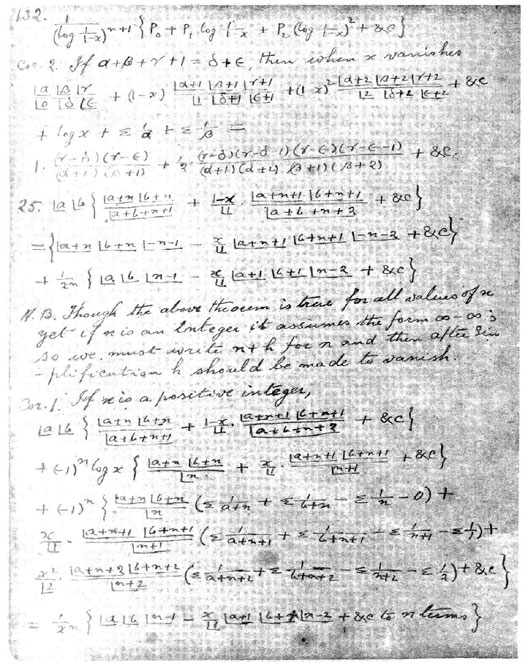 132.
1/(log 1/(1-x))^(n+1) { P₀ + P₁ log 1/(1-x) + P₂ (log 1/(1-x))² + &c }
Cor. 2. If α+β+γ+1 = δ+ε, then when x vanishes
|α |β |γ / |0 |δ |ε + (1-x) |α+1 |β+1 |γ+1 / |1 |δ+1 |ε+1 + (1-x)² |α+2 |β+2 |γ+2 / |2 |δ+2 |ε+2 + &c
+ log x + Σ 1/α + Σ 1/β =
1. (γ-δ)(γ-ε) / (α+1)(β+1) + ½ (γ-δ)(γ-δ-1)(γ-ε)(γ-ε-1) / (α+1)(α+2)(β+1)(β+2) + &c.
25. |a |b { |a+n |b+n / |a+b+n+1 + (1-x)/|1 · |a+n+1 |b+n+1 / |a+b+n+2 + &c }
= { |a+n |b+n |-n-1 - x/|1 |a+n+1 |b+n+1 |-n-2 + &c }
+ 1/xⁿ { |a |b |n-1 - x/|1 |a+1 |b+1 |n-2 + &c }
N.B. Though the above theorem is true for all values of n
yet if n is an Integer it assumes the form ∞-∞;
so we must write n+h for n and then after sim
-plification h should be made to vanish.
Cor. 1. If n is a positive integer,
|a |b { |a+n |b+n / |a+b+n+1 + (1-x)/|1 · |a+n+1 |b+n+1 / |a+b+n+2 + &c }
+ (-1)ⁿ log x { |a+n |b+n / |n + x/|1 · |a+n+1 |b+n+1 / |n+1 + &c }
+ (-1)ⁿ { |a+n |b+n / |n (Σ 1/(a+n) + Σ 1/(b+n) - Σ 1/n - 0) +
x/|1 · |a+n+1 |b+n+1 / |n+1 (Σ 1/(a+n+1) + Σ 1/(b+n+1) - Σ 1/(n+1) - Σ 1/1) +
x²/|2 · |a+n+2 |b+n+2 / |n+2 (Σ 1/(a+n+2) + Σ 1/(b+n+2) - Σ 1/(n+2) - Σ 1/2) + &c }
= 1/xⁿ { |a |b |n-1 - x/|1 |a+1 |b+1 |n-2 + &c to n terms }